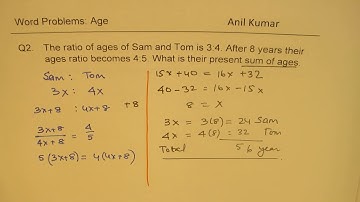 Word Problems: Age
Anil Kumar
Q2. The ratio of ages of Sam and Tom is 3:4. After 8 years their
ages ratio becomes 4:5. What is their present sum of ages.
Sam : Tom
3x : 4x
3x+8 : 4x+8 +8
3x+8 / 4x+8 = 4/5
5(3x+8) = 4(4x+8)
15x+40 = 16x+32
40-32 = 16x-15x
8 = x
3x = 3(8) = 24 Sam
4x = 4(8) = 32 Tom
Total 56 year